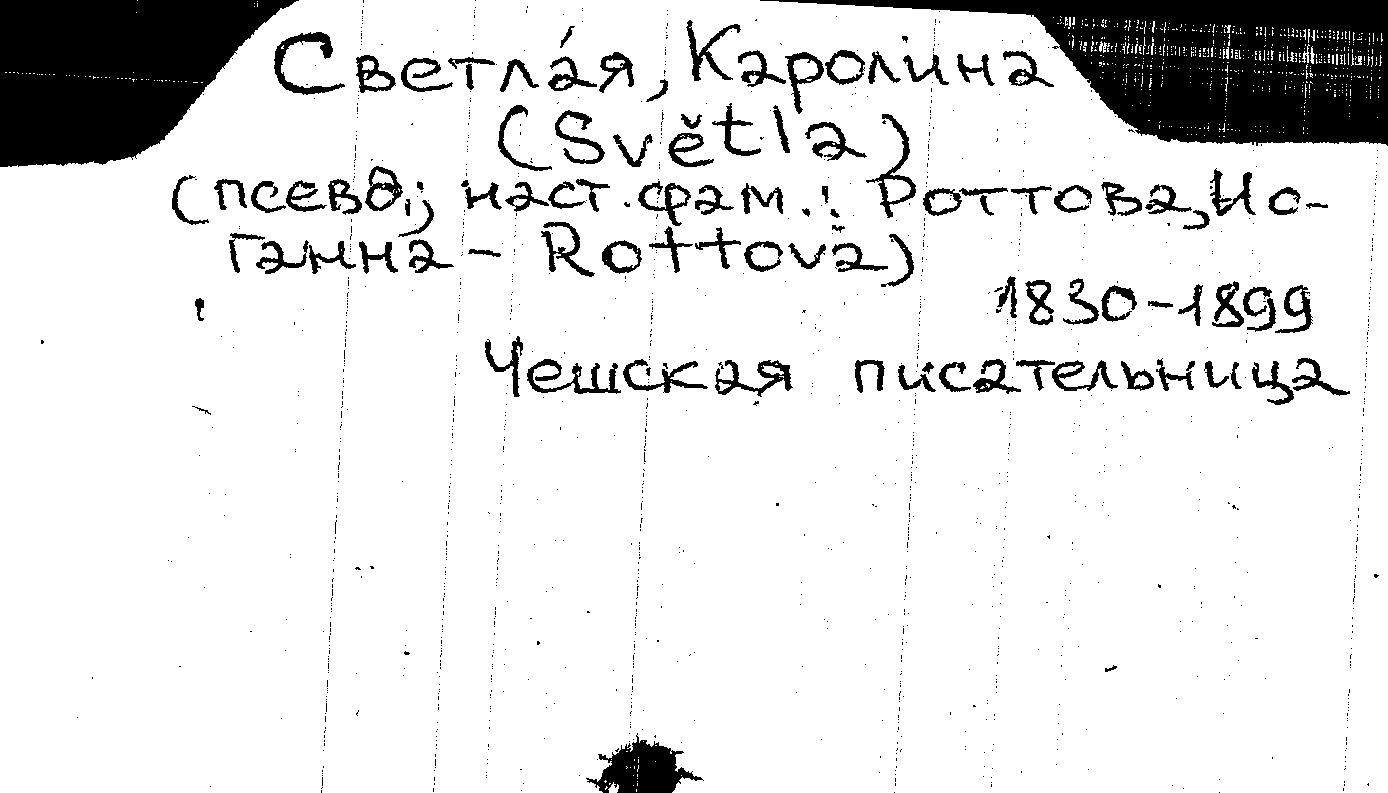 Светла́я, Каролина
(Světla)
(псевд.; наст. фам.: Роттова, Ио-
ганна - Rottova)
1830-1899
Чешская писательница